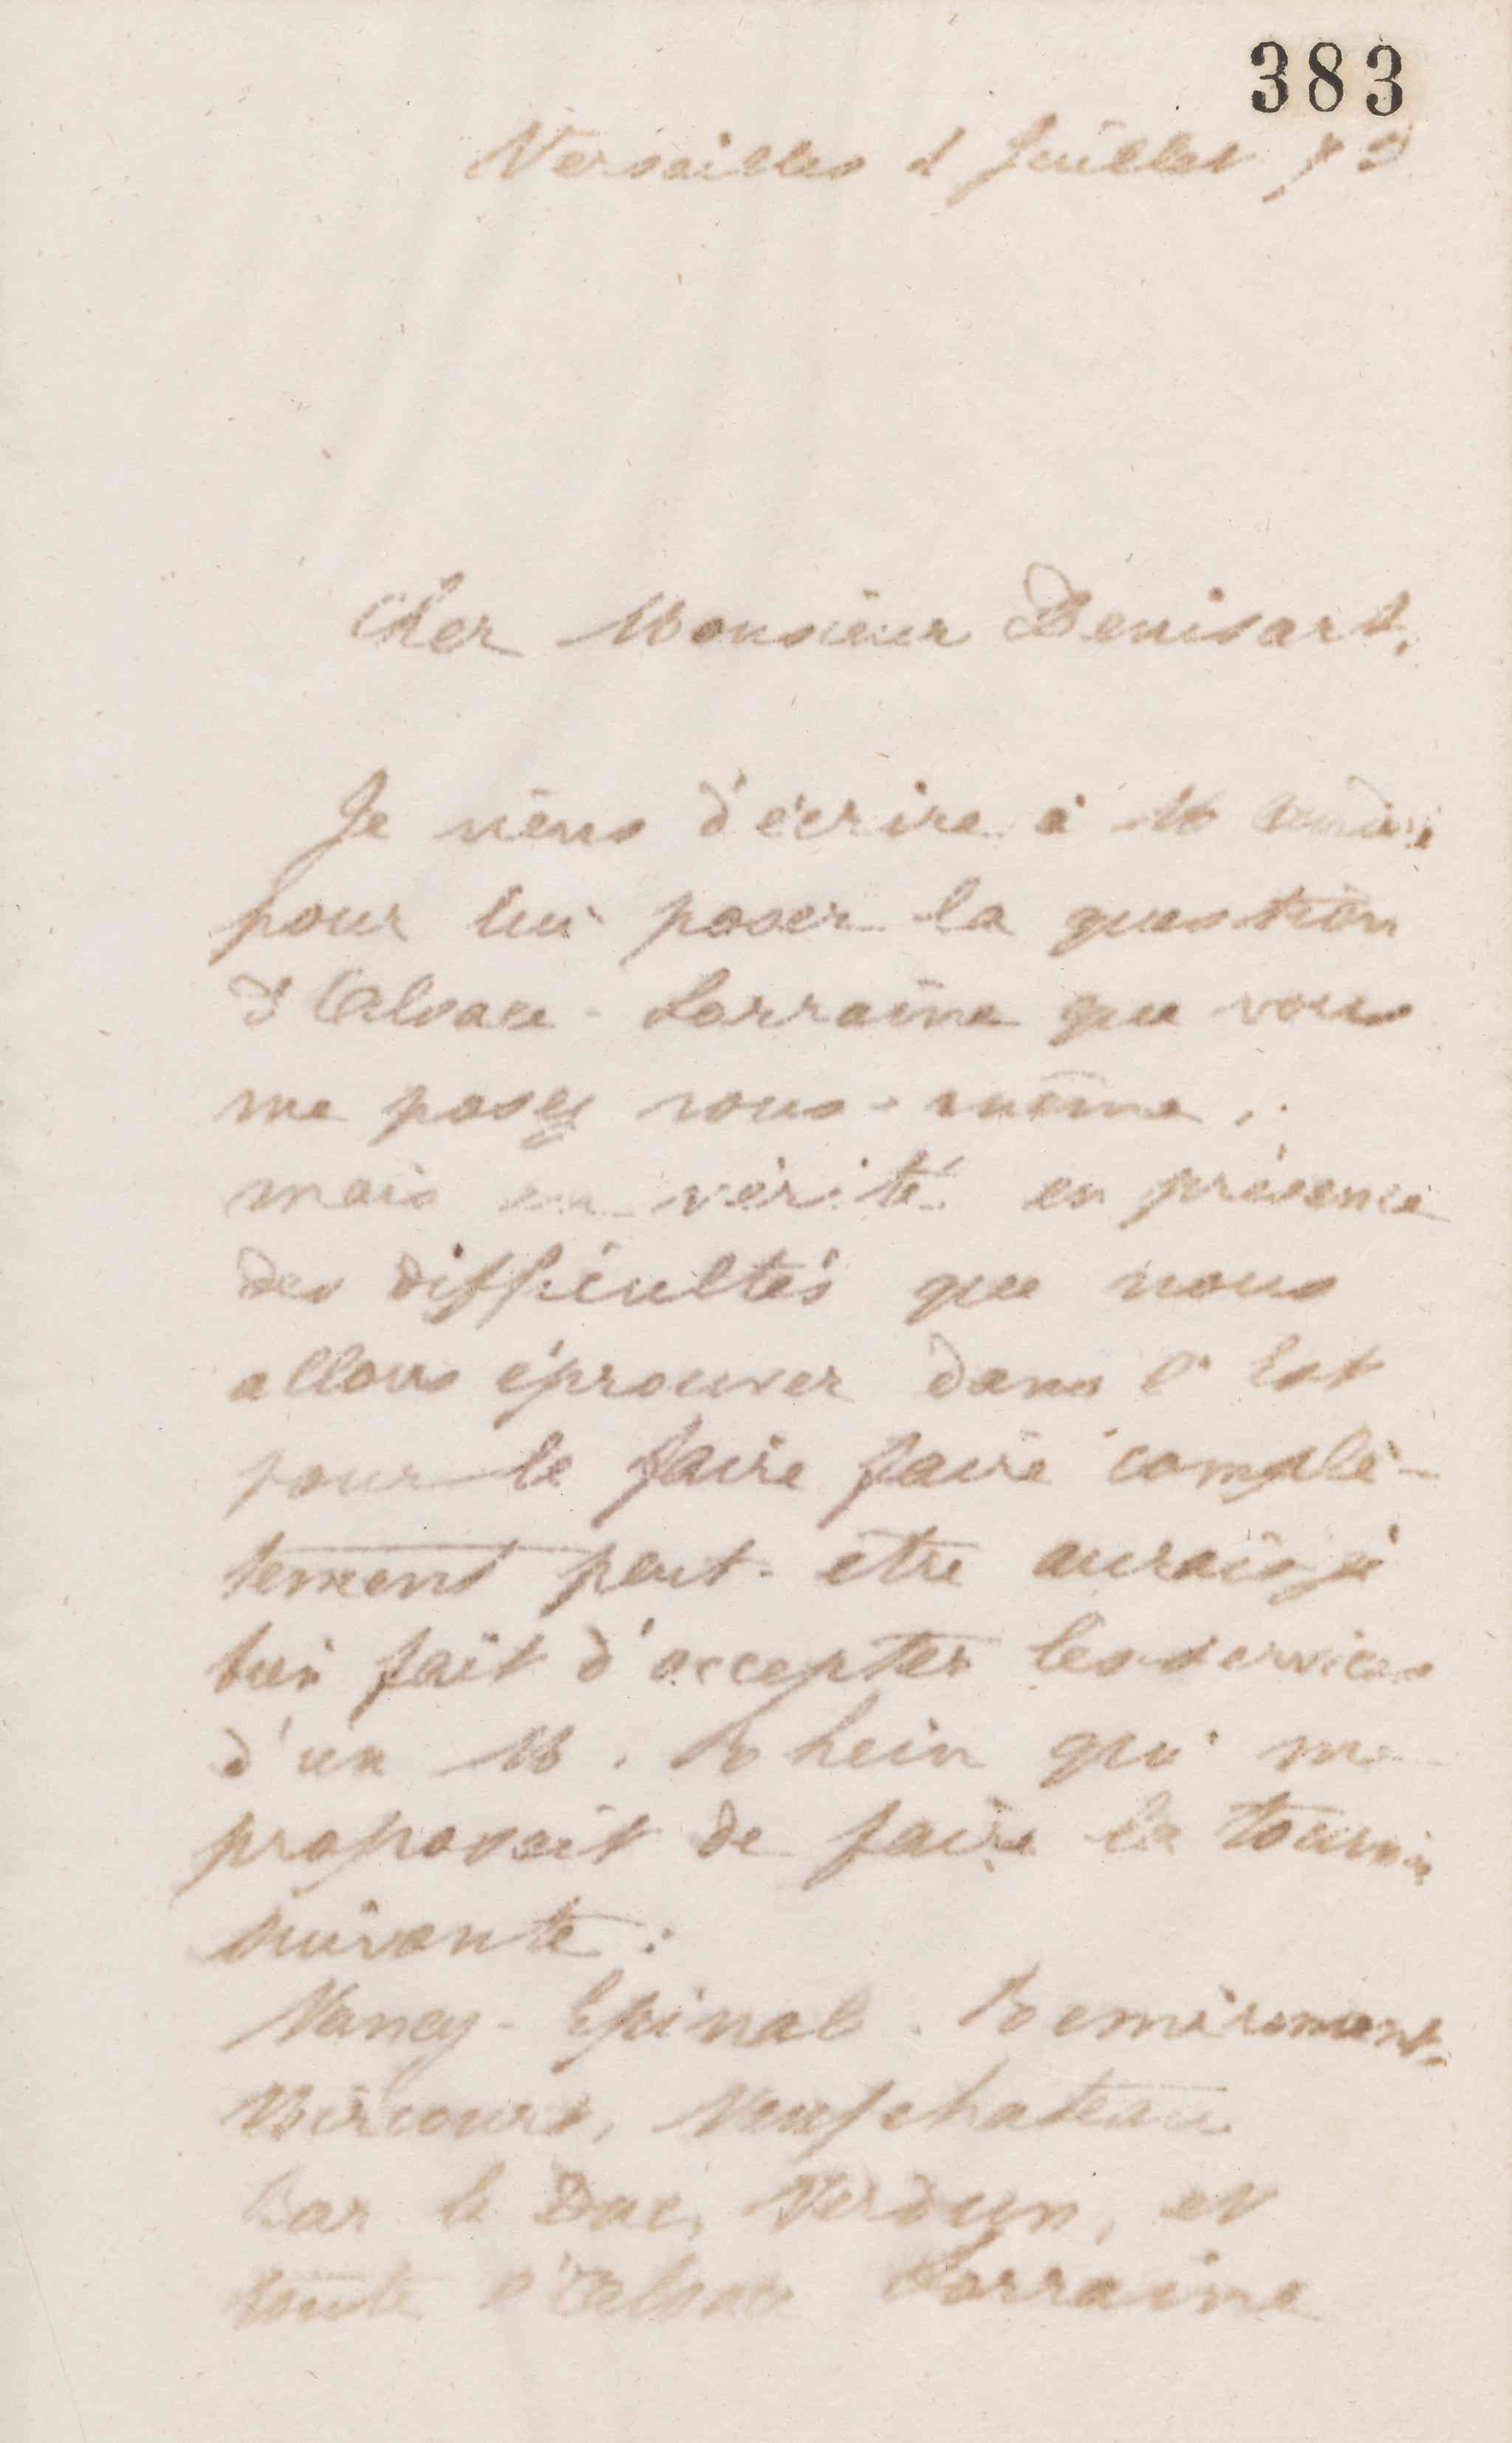 383
Versailles 2 Juillet 79
Cher Monsieur Denisart,
Je viens d'écrire à M
pour lui poser la question
d'Alsace-Lorraine que vous
me posez vous-même,
mais en vérité en présence
des difficultés que nous
allons éprouver dans l'Est
pour le faire faire complè-
tement peut-être aurais je
bien fait d'accepter les services
d'un M. Rhein qui me
proposait de faire la tournée
suivante :
Nancy - Epinal. Remiremont.
Mircourt, Neufchateau
Bar le Duc, Verdun, et
toute l'Alsace Lorraine